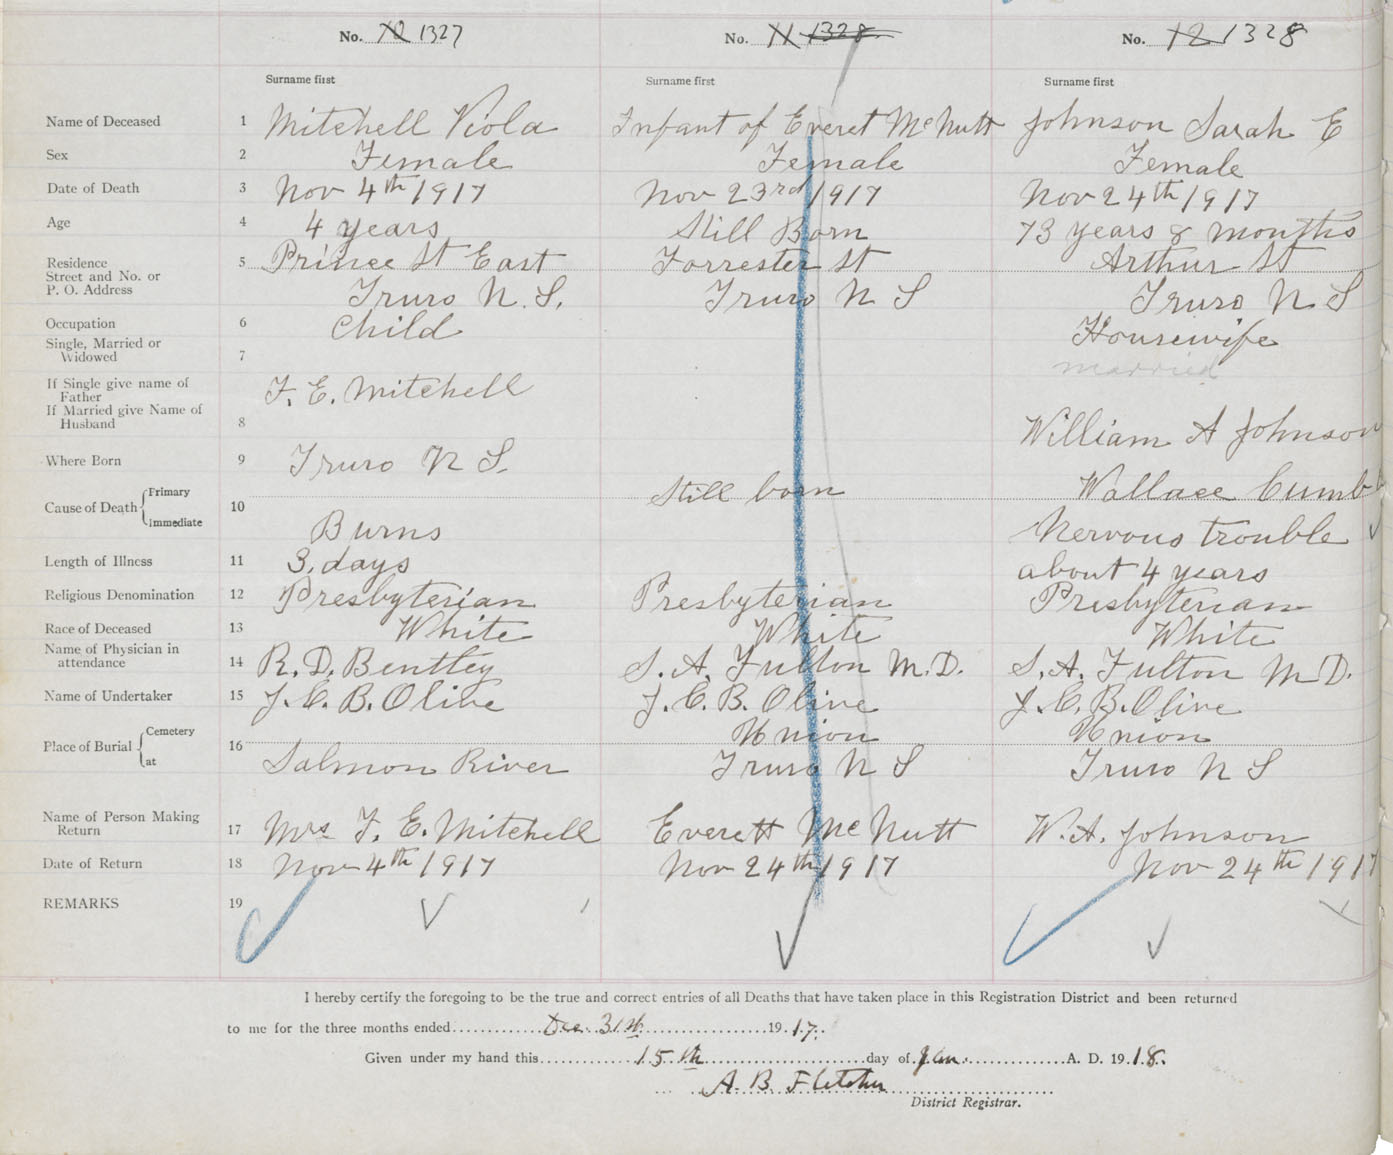 No. 10 1327 No. 11 1328 No. 12 1328
Surname first Surname first Surname first
Name of Deceased 1 Mitchell Viola Infant of Everet McNutt Johnson Sarah E
Sex 2 Female Female Female
Date of Death 3 Nov 4th 1917 Nov 23rd 1917 Nov 24th 1917
Age 4 4 years Still Born 73 years 8 months
Residence
Street and No. or
P. O. Address 5 Prince St East Forrester St Arthur St
Truro N.S. Truro N S Truro N S
Occupation 6 Child Housewife
Single, Married or
Widowed 7 married
If Single give name of
Father F. E. Mitchell
If Married give Name of
Husband 8 William A Johnson
Where Born 9 Truro N S. Wallace Cumb
Cause of Death { Primary 10 Still born
Immediate Burns Nervous trouble
Length of Illness 11 3 days about 4 years
Religious Denomination 12 Presbyterian Presbyterian Presbyterian
Race of Deceased 13 White White White
Name of Physician in
attendance 14 R. D. Bentley S. A. Fulton M.D. S. A. Fulton M D.
Name of Undertaker 15 J. C. B. Olive J. C. B. Olive J. C. B. Olive
Place of Burial { Cemetery 16 Union Union
at Salmon River Truro N S Truro N S
Name of Person Making
Return 17 Mrs F. E. Mitchell Everett McNutt W. A. Johnson
Date of Return 18 Nov 4th 1917 Nov 24th 1917 Nov 24th 1917
REMARKS 19
I hereby certify the foregoing to be the true and correct entries of all Deaths that have taken place in this Registration District and been returned
to me for the three months ended Dec 31st 1917.
Given under my hand this 15th day of Jan. A. D. 1918.
A. B. Fletcher
District Registrar.